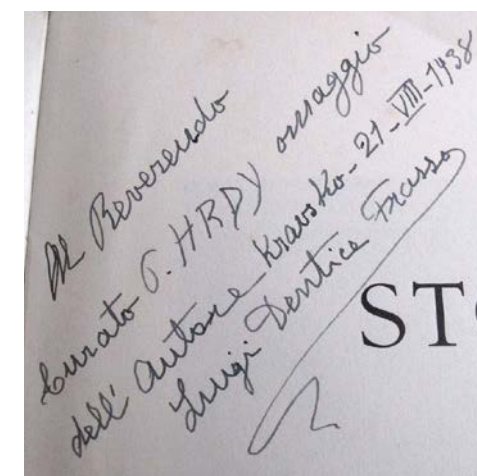 Al Reverendo
Curato G. HRDY omaggio
dell' Autore Kravsko - 21 - VIII - 1938
Luigi Dentice Frasso
STO